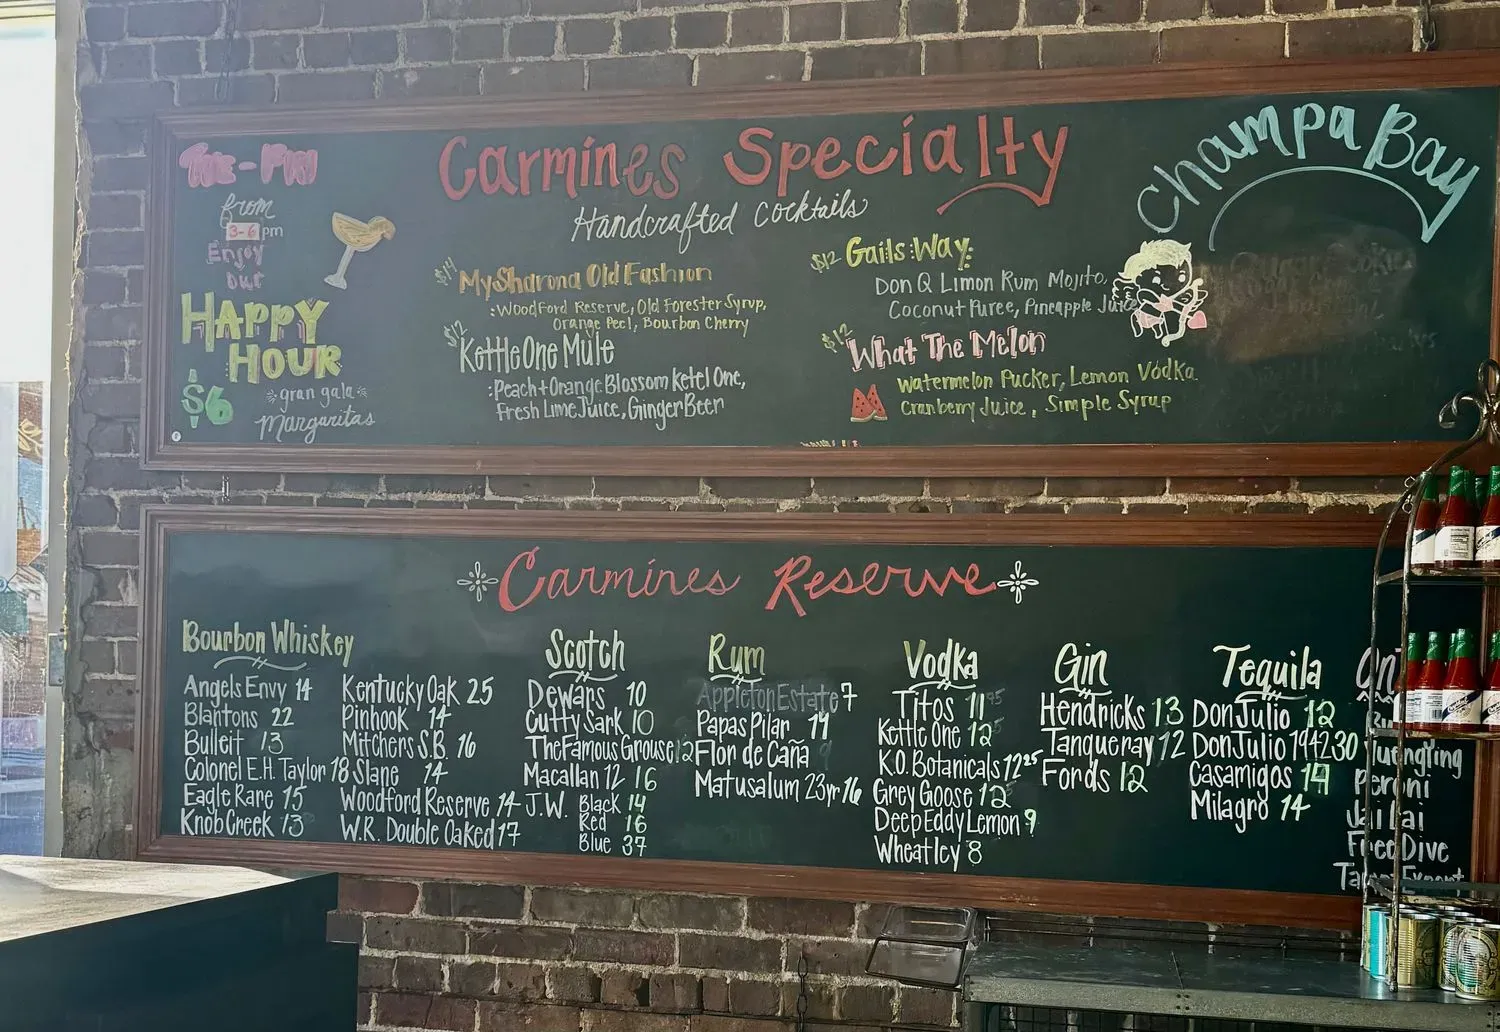 Carmines Specialty
Handcrafted Cocktails
Champa Bay
TUE-FRI
from
3-6 pm
Enjoy
our
HAPPY
HOUR
$6
gran gala
margaritas
$14 My Sharona Old Fashion
:Woodford Reserve, Old Forester Syrup,
Orange Peel, Bourbon Cherry
$12 Kettle One Mule
:Peach + Orange Blossom Ketel One,
Fresh Lime Juice, Ginger Beer
$12 Gails Way:
Don Q Limon Rum Mojito,
Coconut Puree, Pineapple Juice
$12 What The Melon
Watermelon Pucker, Lemon Vodka
Cranberry Juice, Simple Syrup
Carmines Reserve
Bourbon Whiskey
Angels Envy 14
Blantons 22
Bulleit 13
Colonel E.H. Taylor 18
Eagle Rare 15
Knob Creek 13
Kentucky Oak 25
Pinhook 14
Mitchers S.B. 16
Slane 14
Woodford Reserve 14
W.R. Double Oaked 17
Scotch
Dewars 10
Cutty Sark 10
The Famous Grouse 12
Macallan 12 16
J.W. Black 14
Red 16
Blue 37
Rum
Appleton Estate 7
Papas Pilar 14
Flor de Caña 9
Matusalum 23yr 16
Vodka
Titos 11
Kettle One 12
K.O. Botanicals 12 25
Grey Goose 12
Deep Eddy Lemon 9
Wheatley 8
Gin
Hendricks 13
Tanqueray 12
Fords 12
Tequila
Don Julio 12
Don Julio 1942 30
Casamigos 14
Milagro 14
Yuengling
Peroni
Jai Lai
Free Dive